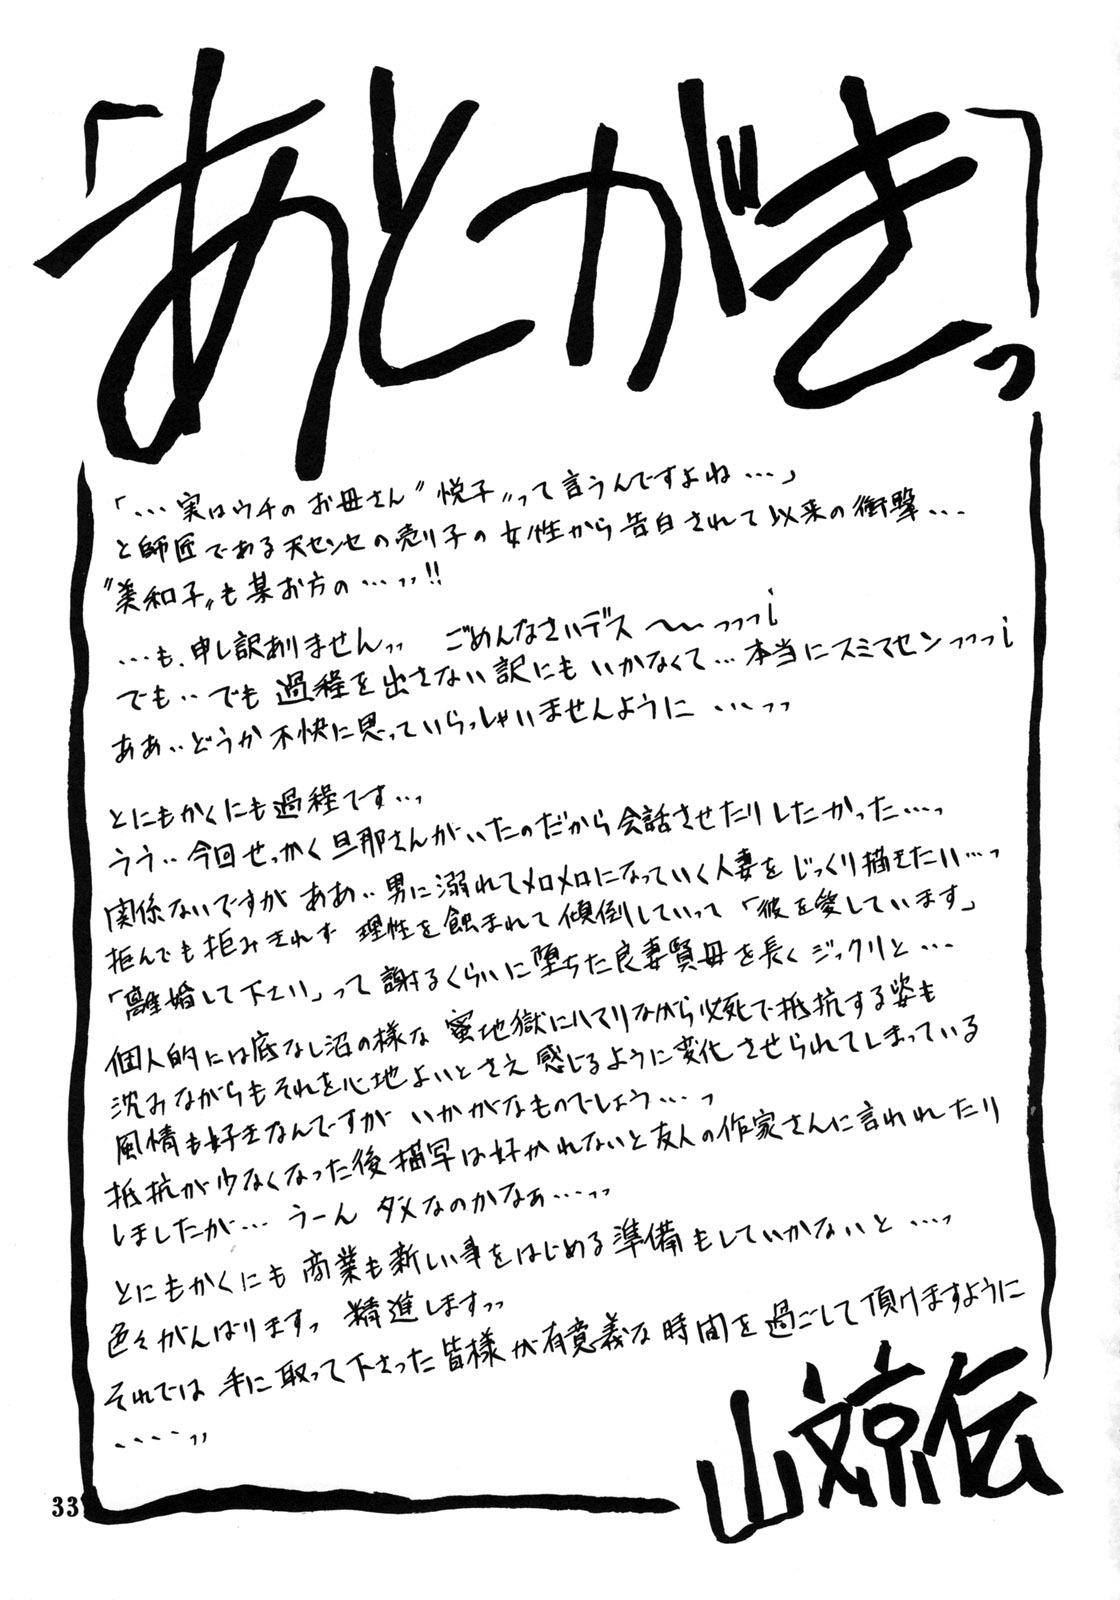 「あとがきっ」
「…実はウチのお母さん〝悦子〟って言うんですよね…」
と師匠である天センセの売り子の女性から告白されて以来の衝撃…
〝美和子〟も某お方の…ッッ!!
…も、申し訳ありませんッッ ごめんなさいデス〜〜ッッッ¡
でも‥でも過程を出さない訳にもいかなくて…本当にスミマセンッッッ¡
ああ‥どうか不快に思っていらっしゃいませんように…ッッ
とにもかくにも過程です…ッ
うう‥今回せっかく旦那さんがいたのだから会話させたりしたかった…ッ
関係ないですがああ‥男に溺れてメロメロになっていく人妻をじっくり描きたい…っ
拒んでも拒みきれず理性を蝕まれて傾倒していって「彼を愛しています」
「離婚して下さい」って謝るくらいに堕ちた良妻賢母を長くジックリと…
個人的には底なし沼の様な蜜地獄にハマりながら必死で抵抗する姿も
沈みながらもそれを心地よいとさえ感じるように変化させられてしまっている
風情も好きなんですがいかがなものでしょう…っ
抵抗が少なくなった後描写は好かれないと友人の作家さんに言われたり
しましたが…うーんダメなのかなぁ…ッッ
とにもかくにも商業も新しい事をはじめる準備もしていかないと…ッ
色々がんばりますっ 精進しますッッ
それでは手に取って下さった皆様が有意義な時間を過ごして頂けますように
‥‥‥ッッ
山文京伝
33